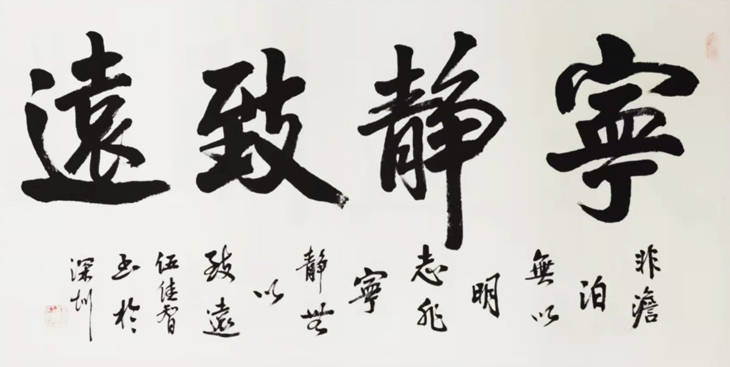 寧靜致遠
非澹
泊
無以
明
志非
寧
靜無
以
致遠
伍佳智
書於
深圳